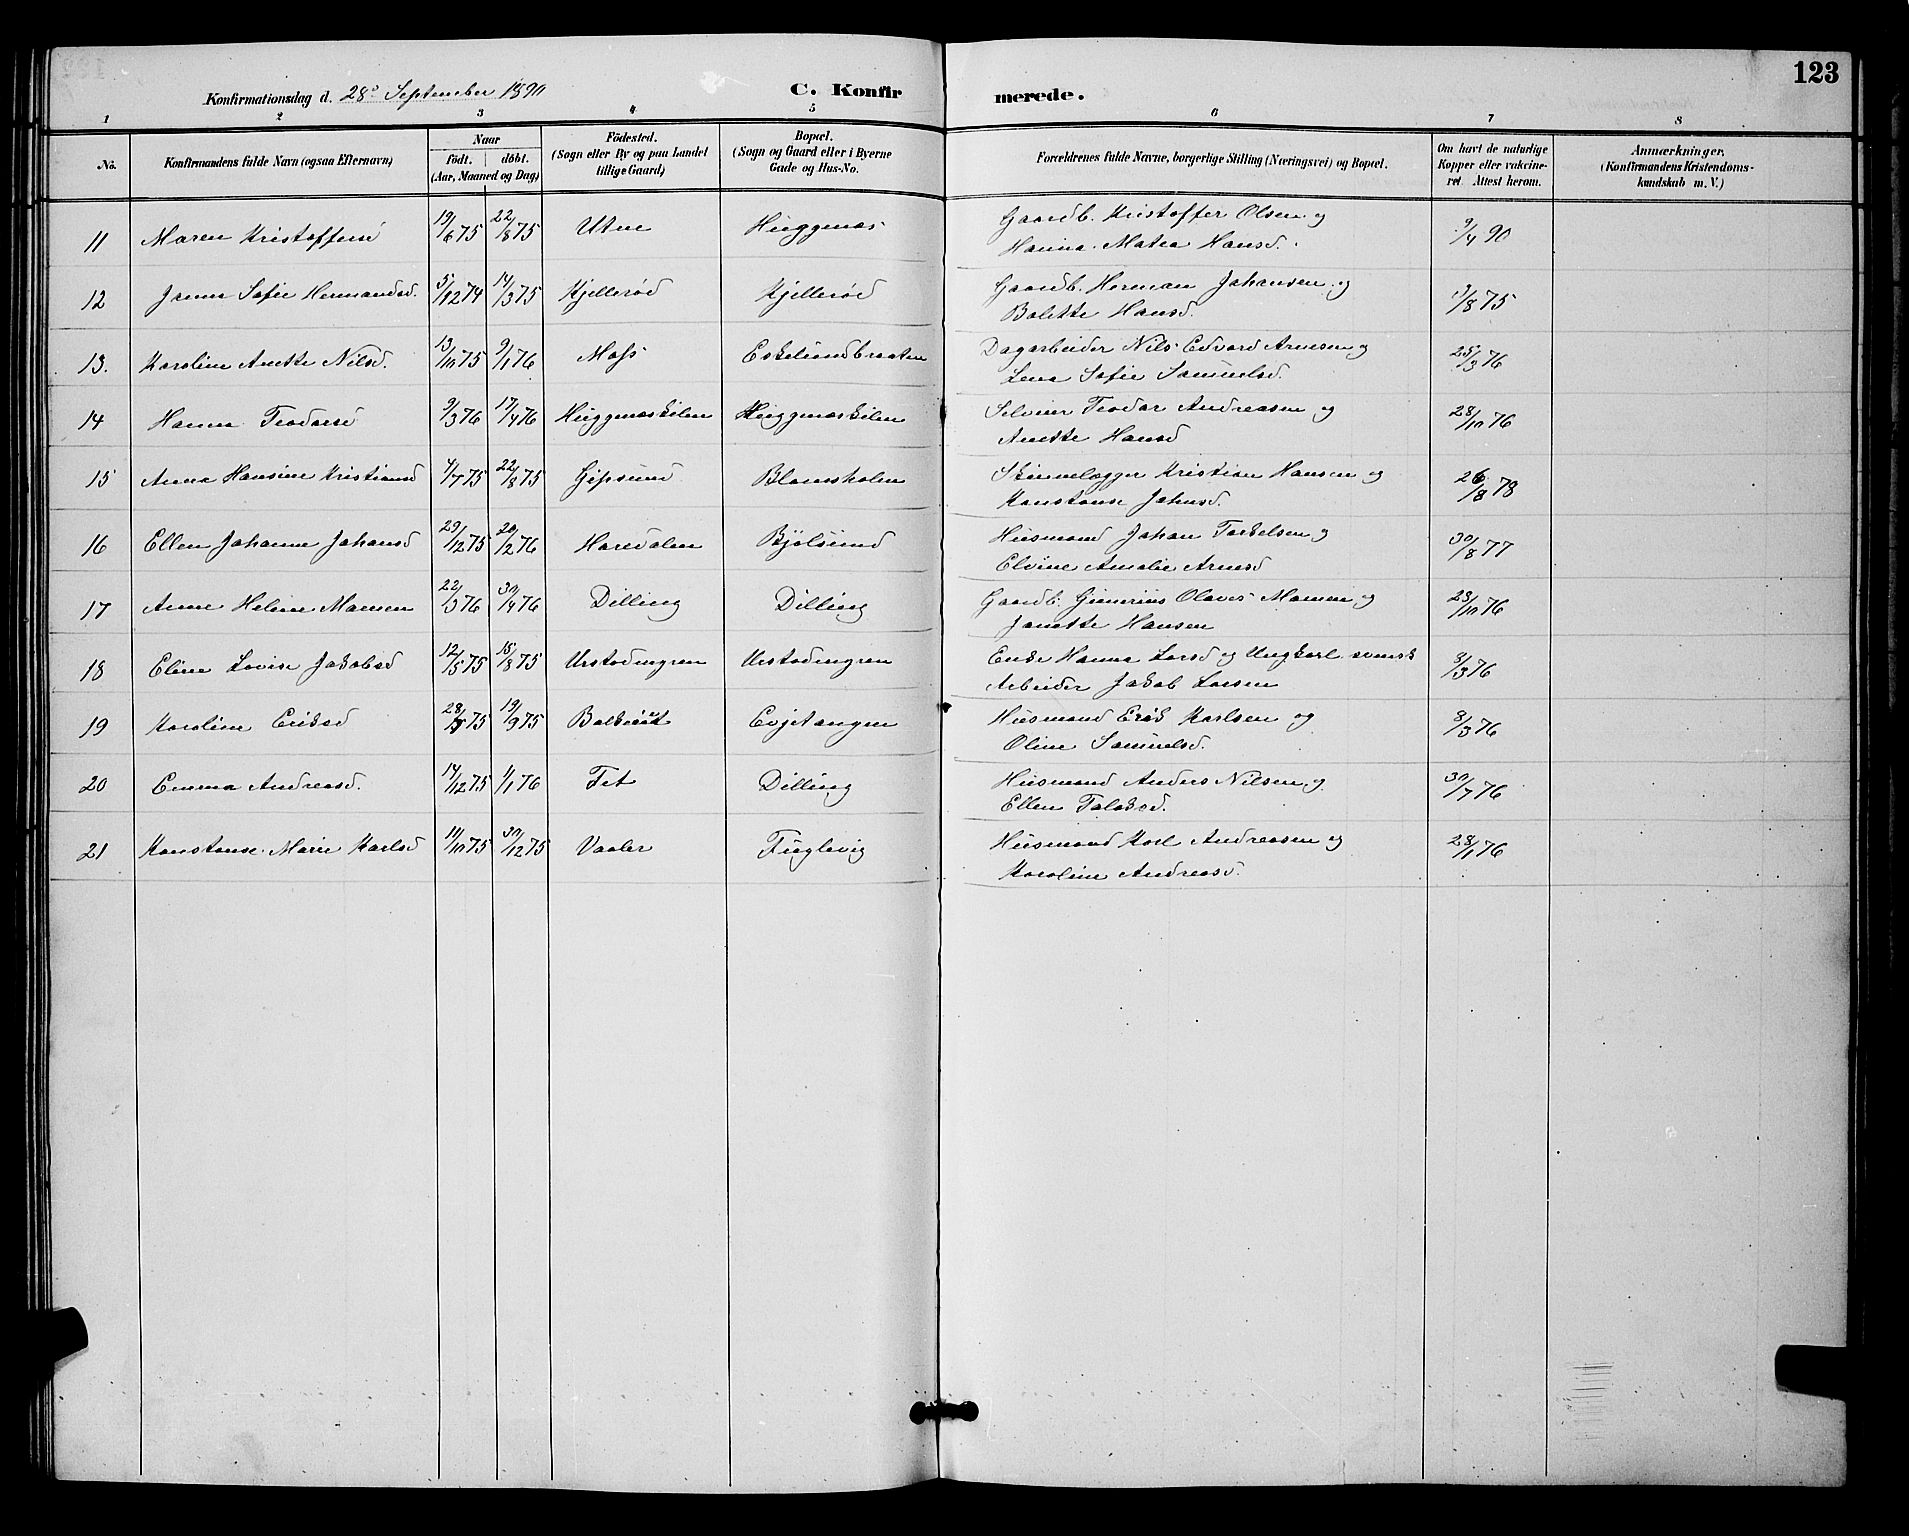 123
Konfirmationsdag d. 28de September 1890 C. Konfirmerede.
1 2 3 4 5 6 7 8
No. Konfirmandens fulde Navn (ogsaa Efternavn) Naar født. døbt. (Aar, Maaned og Dag) Fødested. (Sogn eller By og paa Landet tillige Gaard) Bopæl. (Sogn og Gaard eller i Byerne Gade og Hus-No. Forældrenes fulde Navne, borgerlige Stilling (Næringsvei) og Bopæl. Om havt de naturlige Kopper eller vakcineret. Attest herom. Anmærkninger, (Konfirmandens Kristendomskundskab m. V.)
11 Maren Kristoffersd 19/6 75 22/8 75 Utne Huggenæs Gaardb. Kristoffer Olsen og 9/4 90
Hanna Matea Hansd.
12 Jenna Sofie Hermansd. 5/12 74 14/3 75 Kjellerød Kjellerød Gaardb. Herman Johansen og 13/8 75
Bolette Hansd.
13. Karoline Anette Nilsd. 13/10 75 9/1 76 Moss Eskelundbraaten Dagarbeider Nils Edvard Arnesen og 25/3 76
Lena Sofie Samuelsd.
14 Hanna Teodorsd 9/3 76 17/4 76 Huggenæskilen Huggenæskilen Selveier Teodor Andreasen og 28/10 76
Anette Hansd
15 Anna Hansine Kristiansd 4/7 75 22/8 75 Gipsund Blomsholm Skinnelægger Kristian Hansen og 26/8 78
Konstanse Johnsd.
16 Ellen Johanne Johansd 29/12 75 20/2 76 Haredalen Bjølsund Husmand Johan Torkelsen og 30/8 77
Elvine Amalie Arnesd
17 Anne Helene Mamen 22/3 76 30/4 76 Dilling Dilling Gaardb. Gunerius Olaves Mamen og 23/10 76
Janette Hansen
18 Eline Lovise Jakobsd 12/5 75 15/8 75 Urstadengren Urstadengren Enke Hanna Larsd og Ungkarl svensk 3/3 76
Arbeider Jakob Larsen
19 Karoline Eriksd 28/5 75 19/9 75 Evjetangen Husmand Erik Karlsen og 3/3 76
Oline Samuelsd.
20 Emma Andreasd. 14/12 75 1/1 76 Fet Dilling Husmand Anders Nilsen og 30/7 76
Ellen Falaksd.
21 Konstanse Marie Karlsd 11/10 75 30/12 75 Vaaler Fuglevig Husmand Karl Andreasen og 28/1 76
Karoline Andreasd.